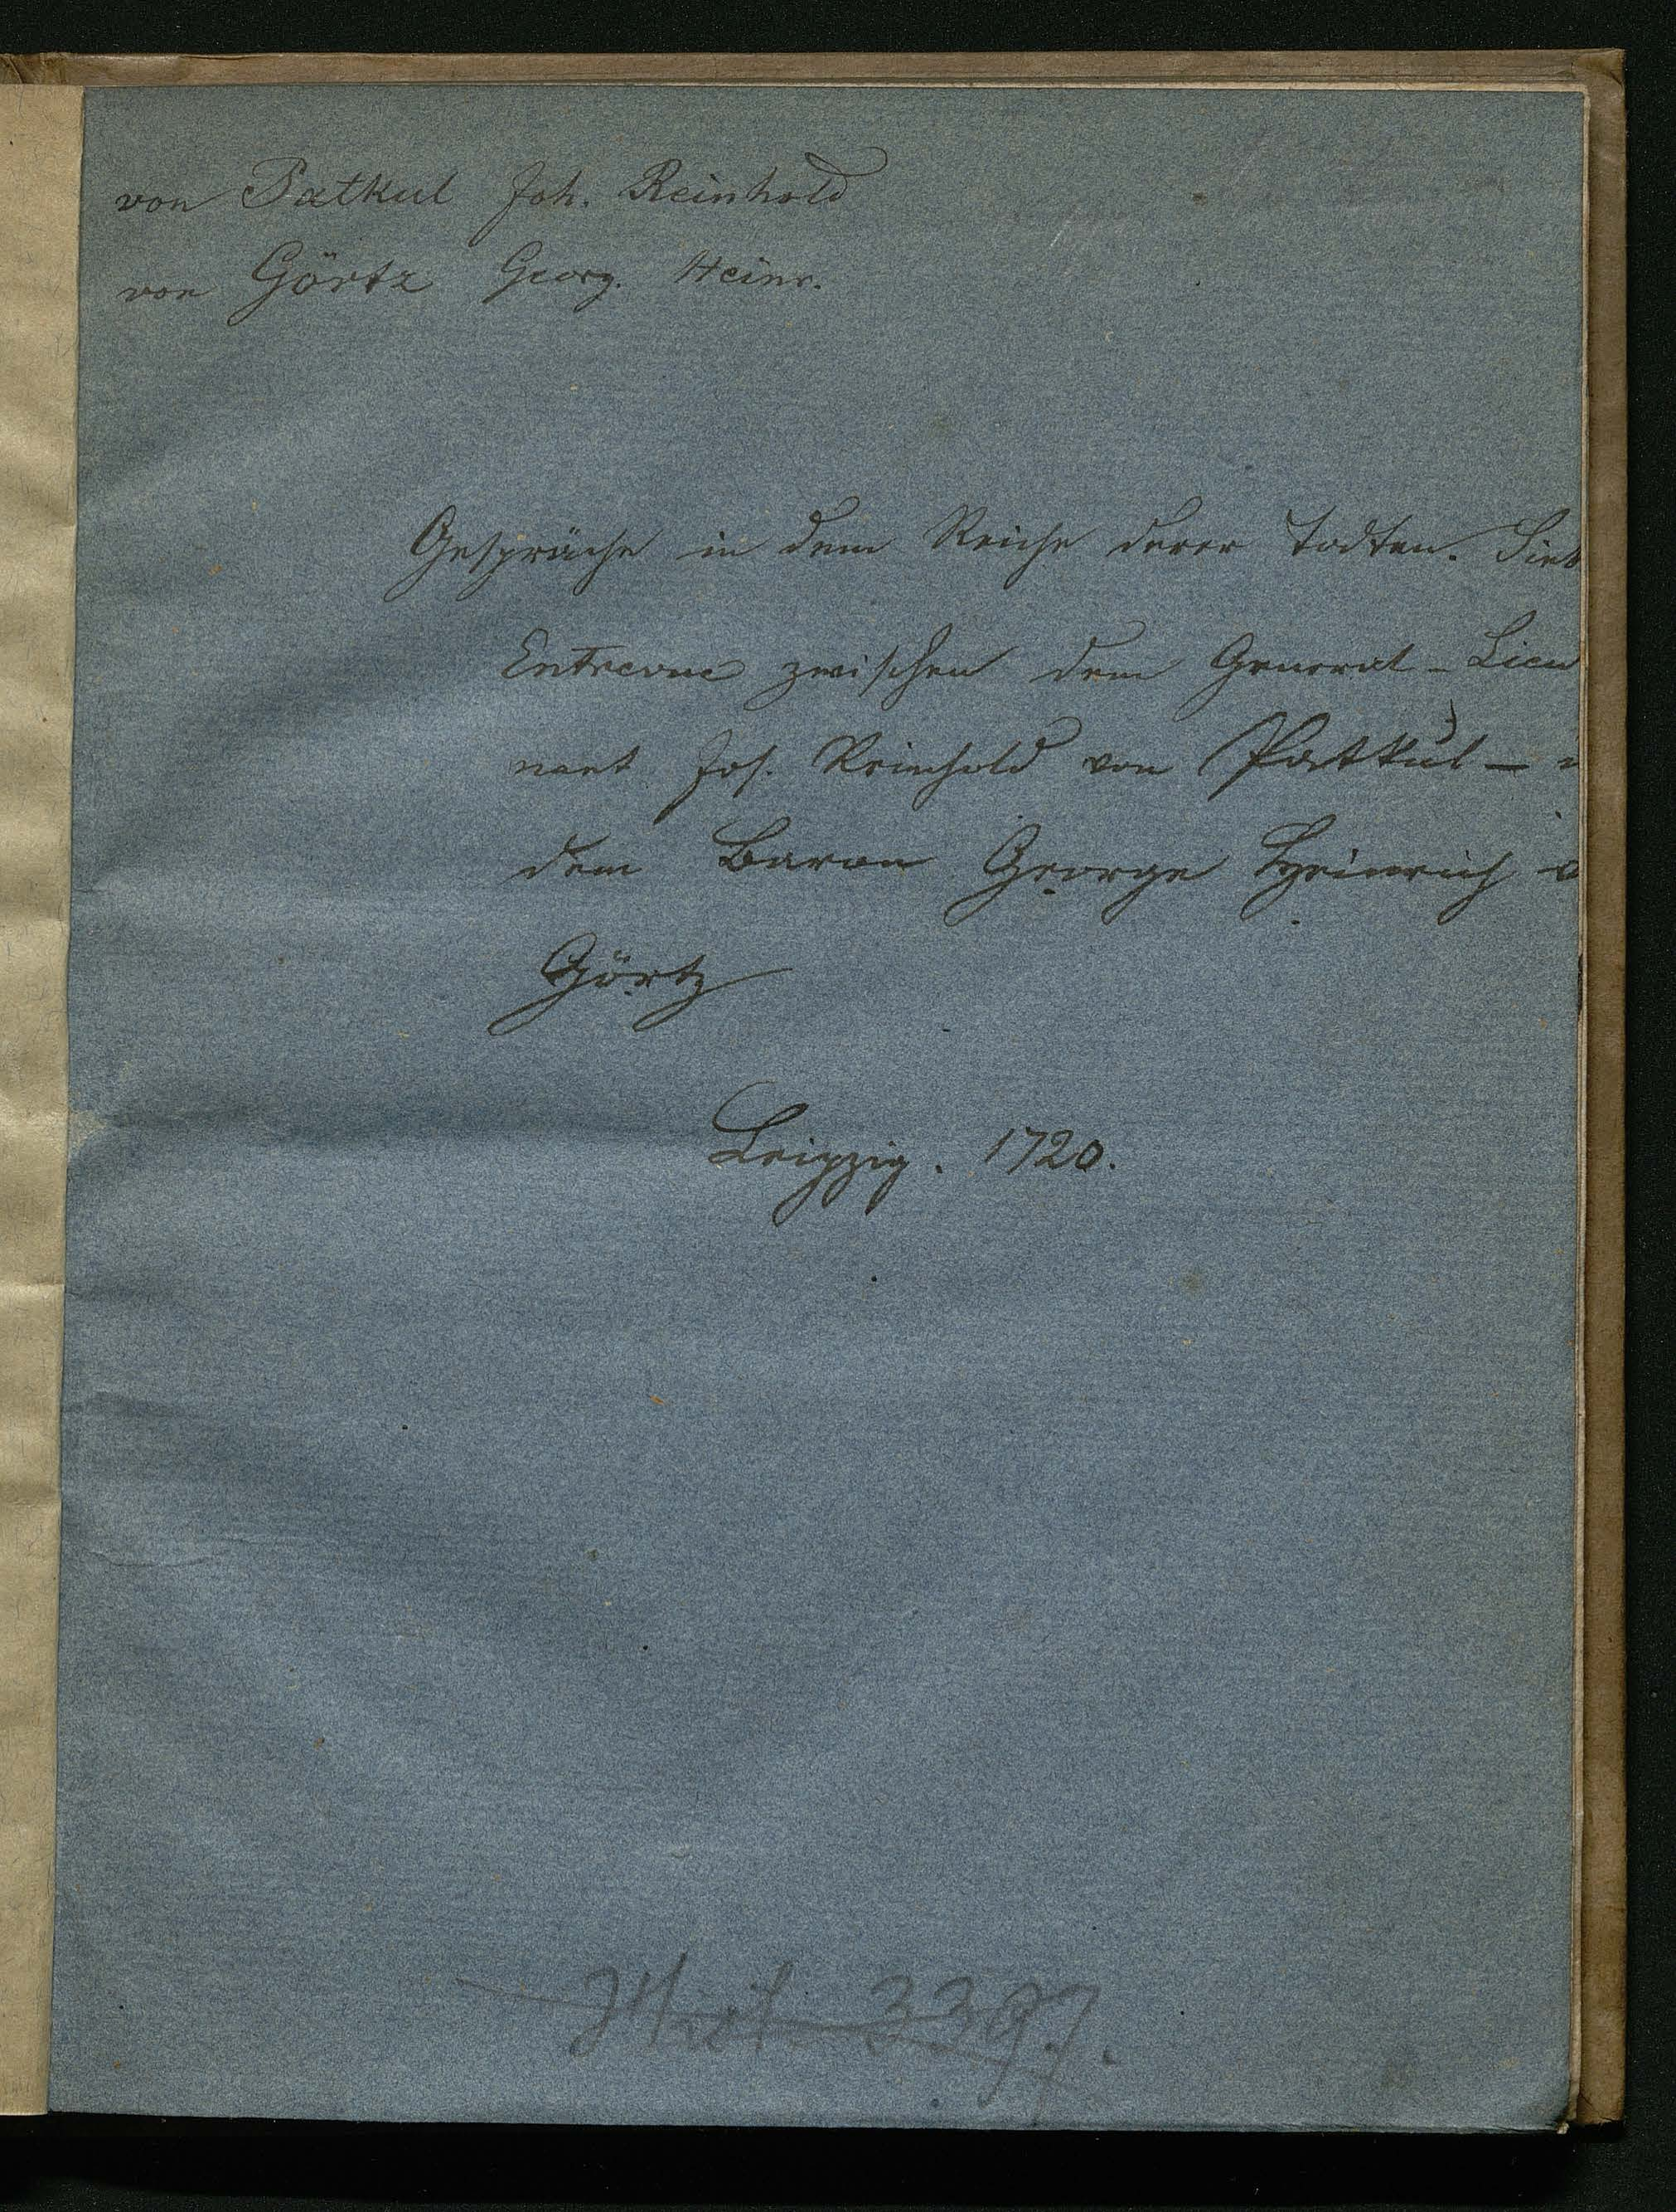 von Patkul Joh. Reinhold
von Görtz Georg. Heinr.
Gespräche in dem Reiche derer Todten. Sieb
Entrevue zwischen dem General-Lieu
nant Joh. Reinhold von Patkul -
dem Baron George Heinrich v
Görtz
Leipzig. 1720.
Hist 3397.